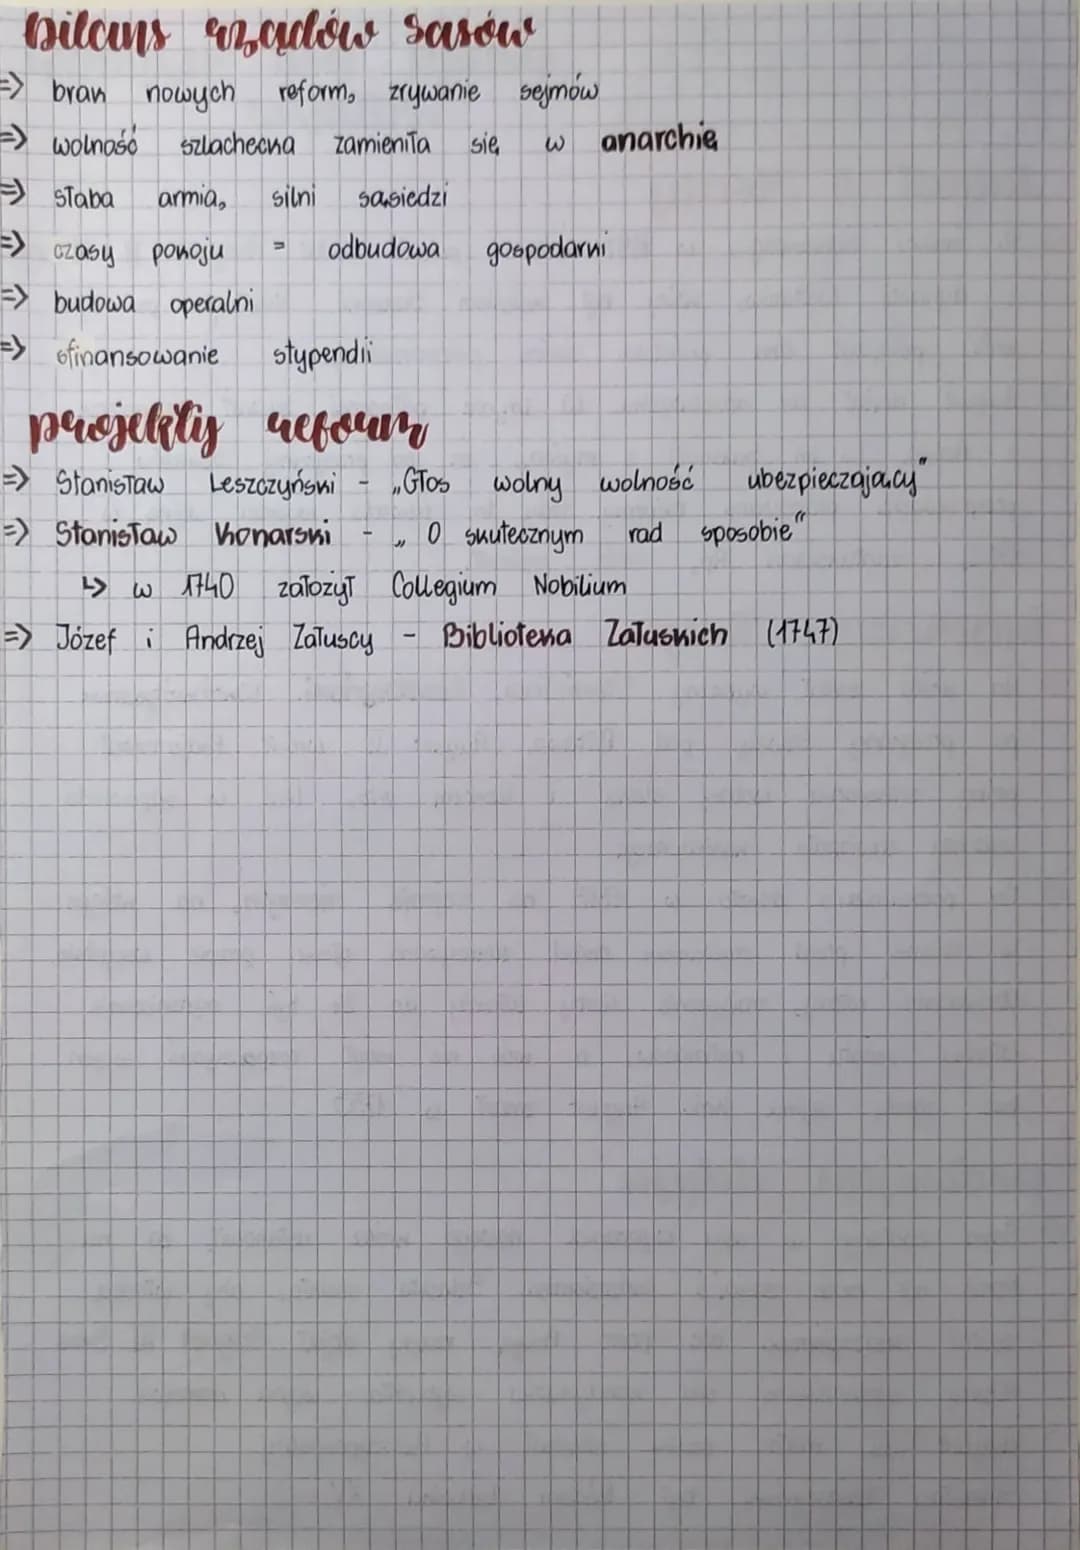 bilans rządów sasów
=> brak nowych reform, zrywanie sejmów
=> wolność szlachecka zamieniła się w anarchię
=> słaba armia, silni sąsiedzi
=> czasy pokoju = odbudowa gospodarki
=> budowa operalni
=> sfinansowanie stypendii
projekty reform
=> Stanisław Leszczyński - „Głos wolny wolność ubezpieczający”
=> Stanisław Konarski - „O skutecznym rad sposobie”
↳ w 1740 założył Collegium Nobilium
=> Józef i Andrzej Załuscy - Biblioteka Załuskich (1747)